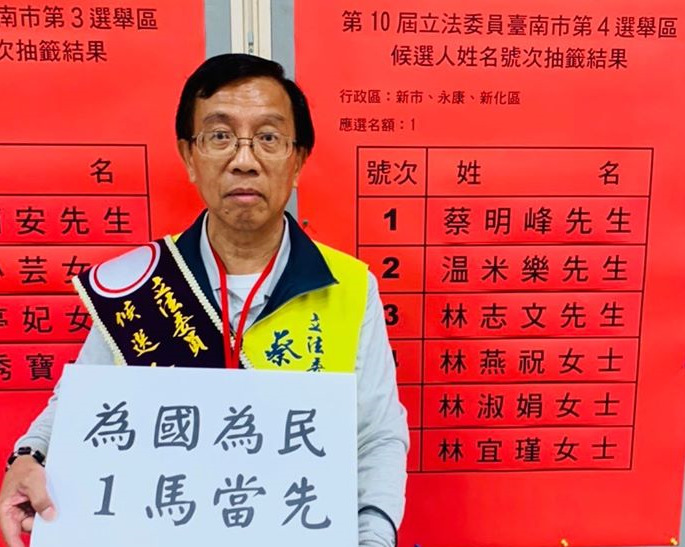 南市第3選舉區
次抽籤結果
名
安先生
芸女
妃女
秀寶
第10屆立法委員臺南市第4選舉區
候選人姓名號次抽籤結果
行政區：新市、永康、新化區
應選名額：1
號次 姓 名
1 蔡明峰先生
2 温米樂先生
3 林志文先生
林燕祝女士
林淑娟女士
林宜瑾女士
立法委員
候選
立法委
蔡
為國為民
1馬當先